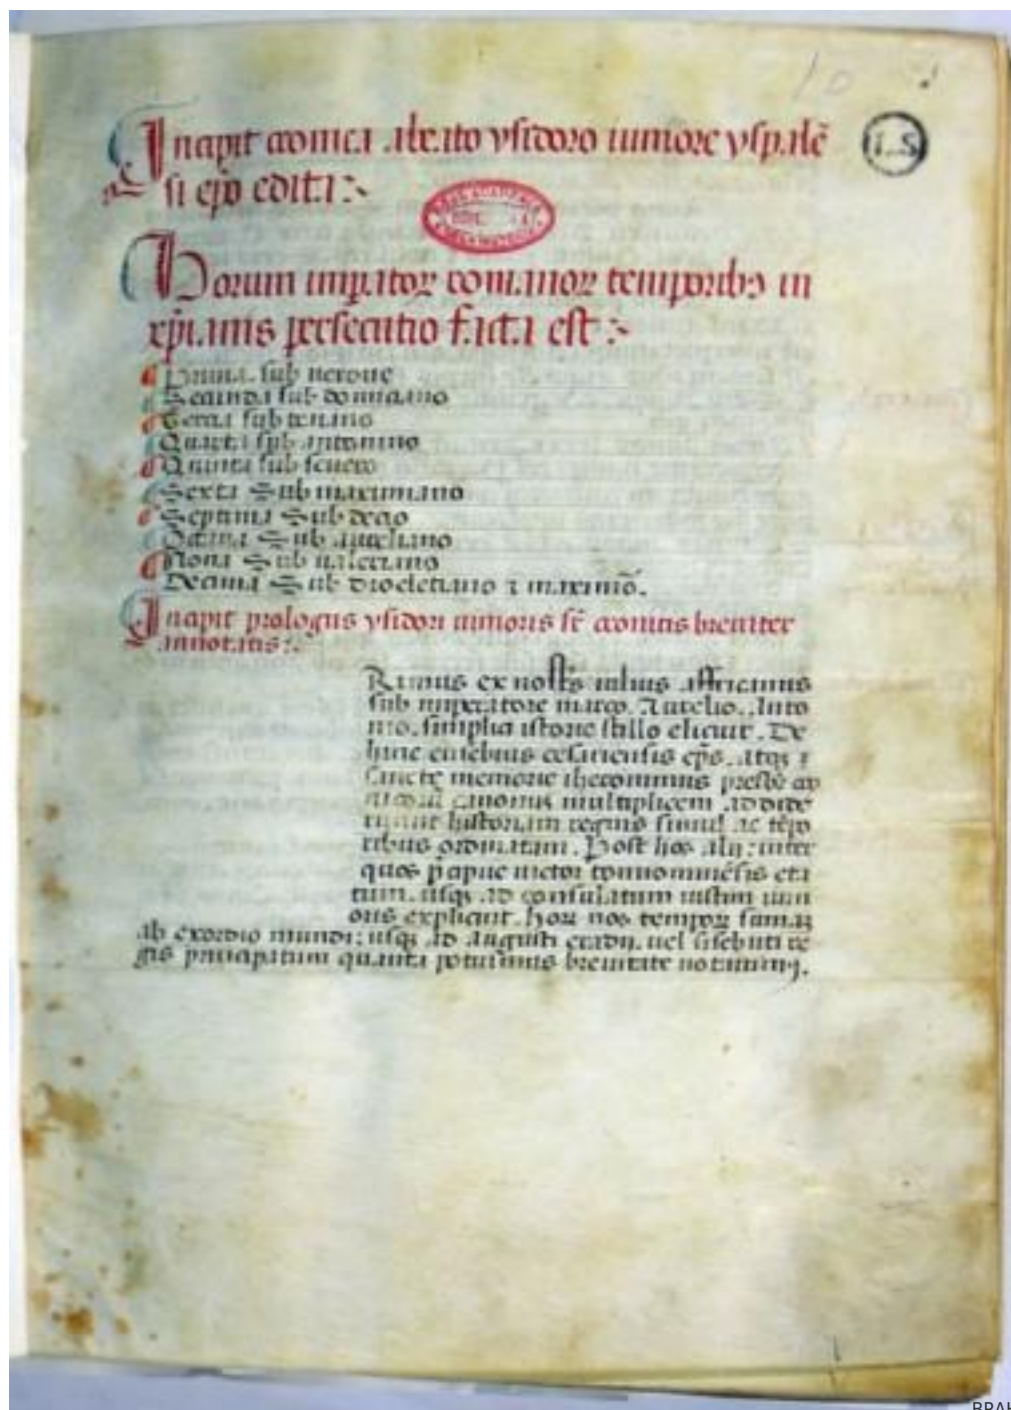 Incipit cronica a beato ysidoro iuniore yspalẽ
si ep̃o edita :~
Horum imp̃atoꝝ romanoꝝ temporibꝰ in
xp̃ianis persecutio facta est :~
Prima sub nerone
Secunda sub domiciano
Tercia sub traiano
Quarta sub antonino
Quinta sub seuero
Sexta Sub maximiano
Septima Sub decio
Octaua Sub aureliano
Nona Sub ualeriano
Decima Sub diocletiano ⁊ maximiõ.
Incipit prologus ysidori iunioris sc̃i cronicis breuiter
annotatis :~
Rimus ex nostris iulius affricanus
sub imperatore marco. Aurelio. Anto
nio. simplici istorie stillo elicuit. De
hinc eusebius cesariensis ep̃s. atqꝫ
sancte memorie iheronimus presbr̃
multiplicem addide
runt historiam regnis simul ac tẽpo
ribus ordinatam. Post hos alij: inter
quos p̃apue uictor tonnonnẽsis
usqꝫ ad consulatum iustini iuni
oris explicuit. horꝫ nos tempoꝝ sumaꝫ
ab exordio mundi: usqꝫ ad augusti eradij. uel sisebuti re
gis principatum quanta potuimus breuitate notauimꝰ.
I.S
10